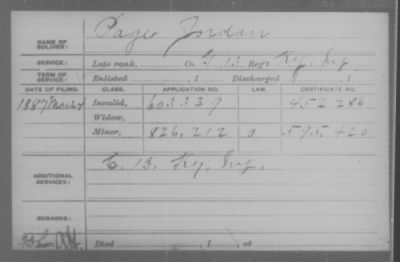 NAME OF SOLDIER: Page Jordan
SERVICE: Late rank, Co. G, 13 Reg't Ky. Inf.
TERM OF SERVICE: Enlisted , 1 Discharged , 1
DATE OF FILING. CLASS. APPLICATION NO. LAW. CERTIFICATE NO.
1887 Mar 24 Invalid, 603.339 452.286
Widow,
Minor, 826.212 595.420
ADDITIONAL SERVICES: C. 13. Ky. Inf.
REMARKS:
Died , 1 , at